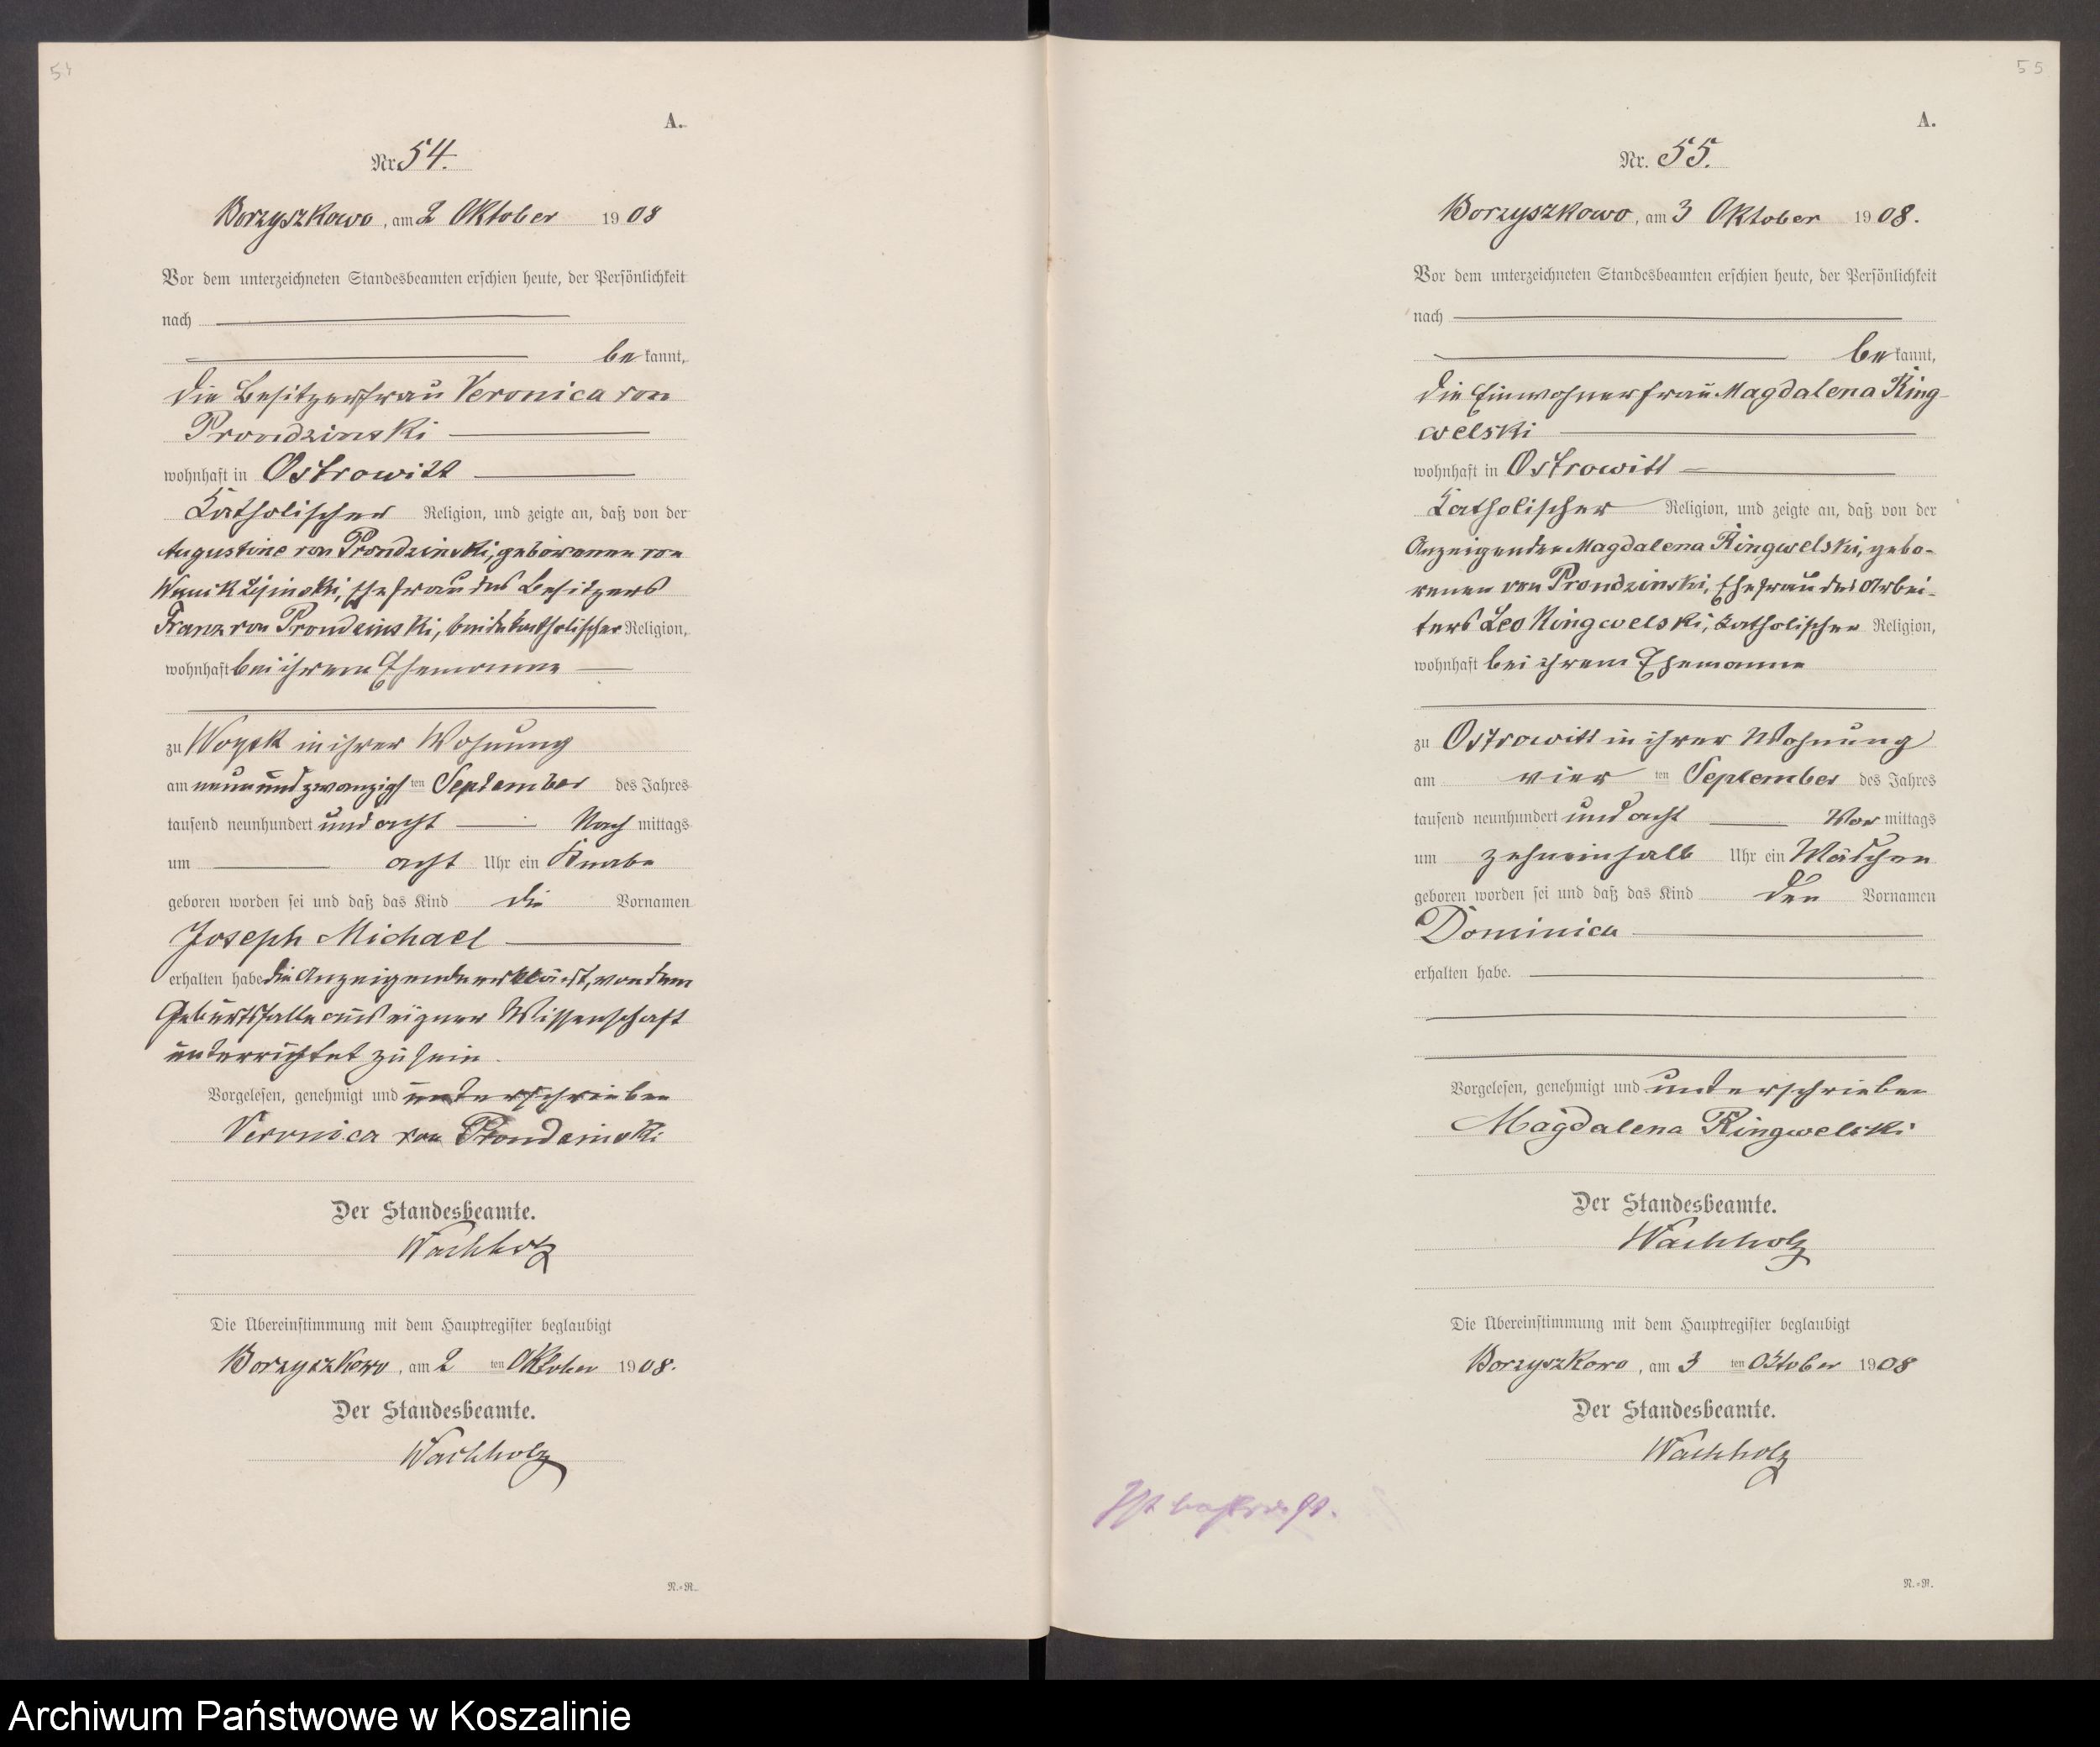 54
A.
Nr. 54.
Borzyszkowo, am 2 Oktober 1908
Vor dem unterzeichneten Standesbeamten erschien heute, der Persönlichkeit
nach
bekannt,
die Besitzerfrau Veronica von
Prondzinski
wohnhaft in Ostrowitt
katholischer Religion, und zeigte an, daß von der
Augustine von Prondzinski, geborenen von
Ehefrau des Besitzers
Franz von Prondzinski, beide katholischer Religion,
wohnhaft bei ihrem Ehemanne
zu Woysk in ihrer Wohnung
am neunundzwanzigsten September des Jahres
tausend neunhundert und acht Nachmittags
um acht Uhr ein Knabe
geboren worden sei und daß das Kind die Vornamen
Joseph Michael
erhalten habe die Anzeigende erklärt, von dem
Geburtsfalle aus eigner Wissenschaft
unterrichtet zu sein.
Vorgelesen, genehmigt und unterschrieben
Veronica von Prondzinski
Der Standesbeamte.
Wachholz
Die Übereinstimmung mit dem Hauptregister beglaubigt
Borzyszkowo, am 2ten Oktober 1908.
Der Standesbeamte.
Wachholz
N.=R.
55
A.
Nr. 55.
Borzyszkowo, am 3 Oktober 1908.
Vor dem unterzeichneten Standesbeamten erschien heute, der Persönlichkeit
nach
bekannt,
die Einwohnerfrau Magdalena Ring-
welski
wohnhaft in Ostrowitt
katholischer Religion, und zeigte an, daß von der
Anzeigenden Magdalena Ringwelski, gebo-
renen von Prondzinski, Ehefrau des Arbei-
ters Leo Ringwelski, katholischer Religion,
wohnhaft bei ihrem Ehemanne
zu Ostrowitt in ihrer Wohnung
am vierten September des Jahres
tausend neunhundert und acht Vormittags
um zehneinhalb Uhr ein Mädchen
geboren worden sei und daß das Kind den Vornamen
Dominica
erhalten habe.
Vorgelesen, genehmigt und unterschrieben
Magdalena Ringwelski
Der Standesbeamte.
Wachholz
Die Übereinstimmung mit dem Hauptregister beglaubigt
Borzyszkowo, am 3ten Oktober 1908
Der Standesbeamte.
Wachholz
N.=R.
Archiwum Państwowe w Koszalinie